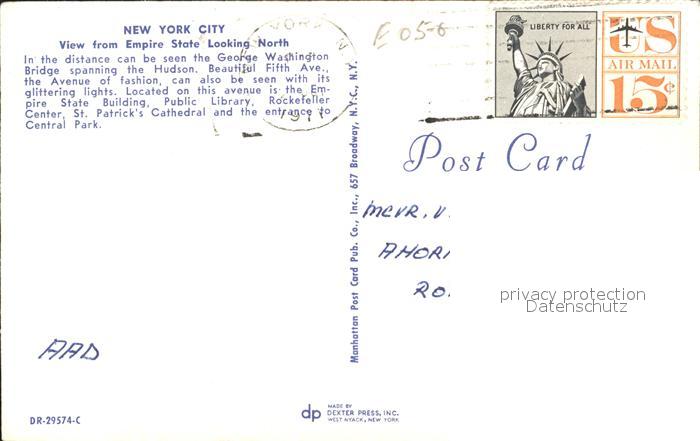 NEW YORK CITY
View from Empire State Looking North
In the distance can be seen the George Washington
Bridge spanning the Hudson. Beautiful Fifth Ave.,
the Avenue of fashion, can also be seen with its
glittering lights. Located on this avenue is the Em-
pire State Building, Public Library, Rockefeller
Center, St. Patrick's Cathedral and the entrance to
Central Park.
E 05-6
LIBERTY FOR ALL
US
AIR MAIL
15¢
Post Card
Manhattan Post Card Pub. Co., Inc., 657 Broadway, N.Y.C., N.Y.
AHORI
RO.
privacy protection
Datenschutz
AAD
DR-29574-C
dp
MADE BY
DEXTER PRESS, INC.
WEST NYACK, NEW YORK